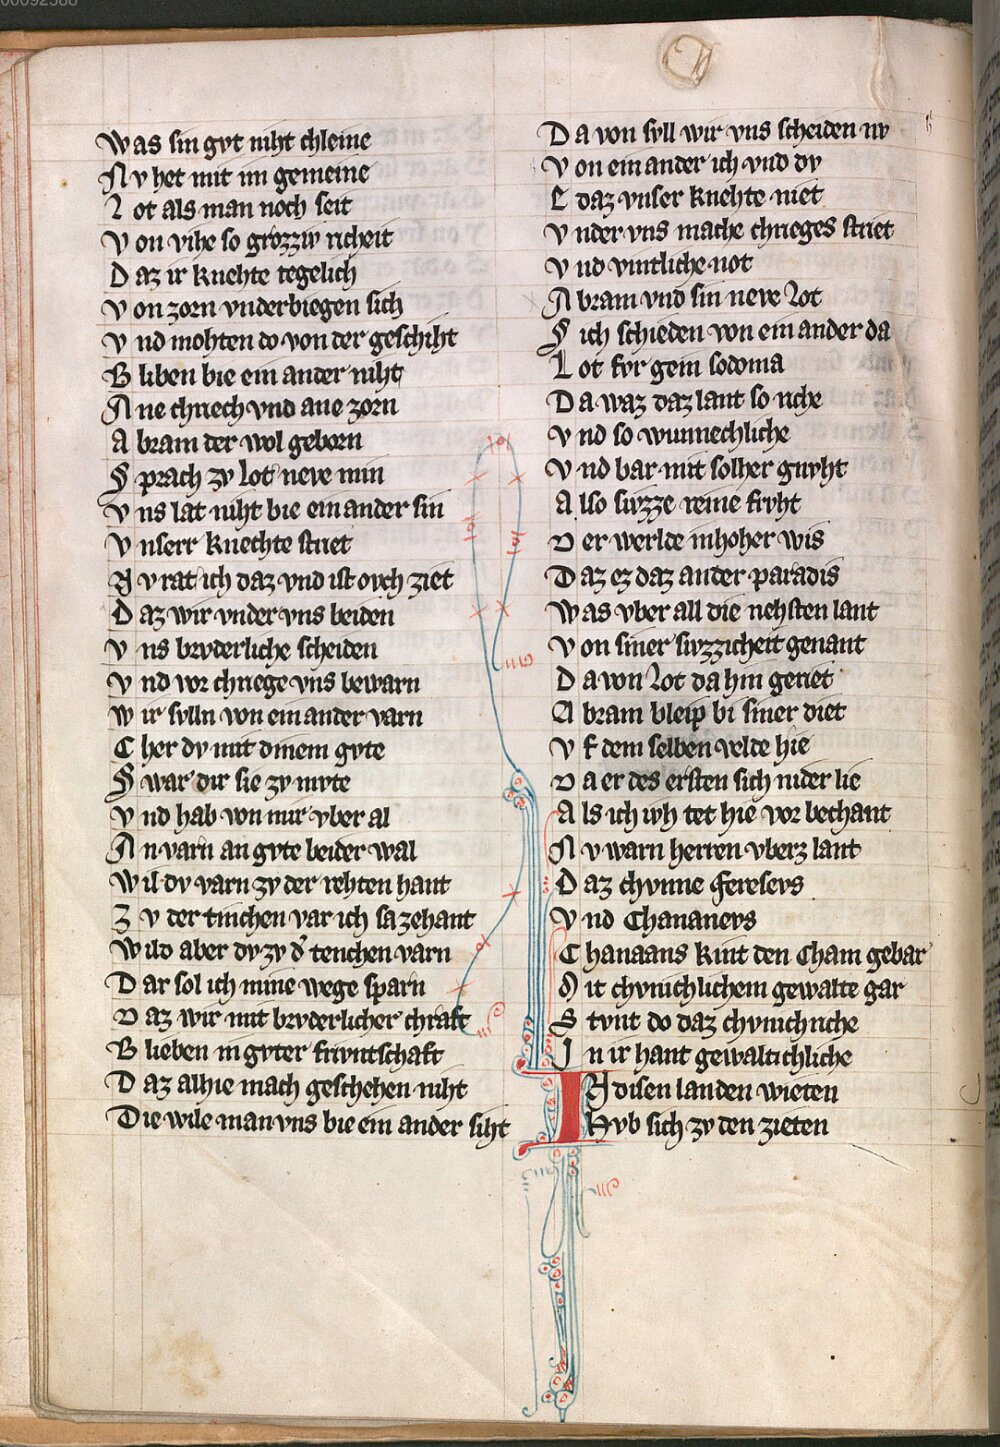 00092588
Was sin gvt niht chleine
Nv het mit im gemeine
Lot als man noch seit
Von vihe so grozziv richeit
Daz ir knehte tegelich
Von zorn vnderbiegen sich
Vnd mohten do von der geschiht
Bliben bie ein ander niht
Ane chriech vnd ane zorn
Abram der wol geborn
Sprach zv Lot neve min
Vns lat niht bie ein ander sin
Vnserr knechte striet
Nv rat ich daz vnd ist ovch ziet
Daz wir vnder vns beiden
Vns brvderliche scheiden
Vnd vor chriege vns bewarn
Wir svlln von ein ander varn
Cher dv mit dinem gvte
Swar dir sie zv mvte
Vnd hab von mir vber al
An varn an gvte beider wal
Wil dv varn zv der rehten hant
Zv der tinchen var ich sa zehant
Wild aber dv zv d͛ tenchen varn
Dar sol ich mine wege sparn
Daz wir mit brvderlicher chraft
Blieben in gvter frivntschaft
Daz alhie mach geschehen niht
Die wile man vns bie ein ander siht
Da von svll wir vns scheiden nv
Von ein ander ich vnd dv
E daz vnser knehte niet
Vnder vns mache chrieges striet
Vnd vintliche not
Abram vnd sin neve Lot
Sich schieden von ein ander da
Lot fvr gein sodoma
Da waz daz lant so riche
Vnd so wunnechliche
Vnd bar mit solher gnvht
Also svzze reine frvht
Der werlde in hoher wis
Daz ez daz ander paradis
Was vber all die nehsten lant
Von siner svzzicheit genant
Da von Lot da hin geriet
Abram bleip bi siner diet
Vf dem selben velde hie
Da er des ersten sich nider lie
Als ich ivh tet hie vor bechant
Nv warn herren vberz lant
Daz chvnne fereseys
Vnd Chananeys
Chanaans kint den Cham gebar
Mit chvnichlichem gewalte gar
Stvnt do daz chvnichriche
In ir hant gewaltichliche
IN disen landen wieten
Hvb sich zv den zieten